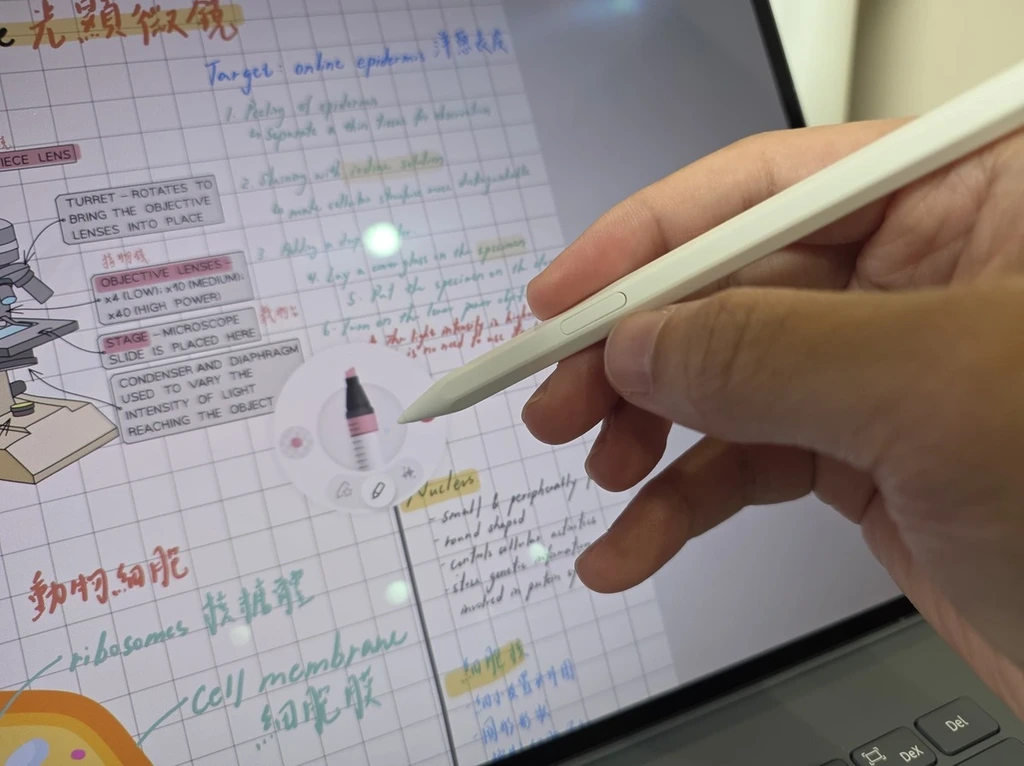 光顯微鏡
Target: online epidermis 洋蔥表皮
1. Peeling of epidermis
↳ separate a thin tissue for observation
PIECE LENS
2. Staining with iodine solution
↳ make cellular structure more distinguishable
TURRET – ROTATES TO
BRING THE OBJECTIVE
LENSES INTO PLACE
3. Adding a drop
4. Lay a coverglass on the specimen
5. Put the specimen on the
6. Turn on the
the light intensity is high
is no need to use
OBJECTIVE LENSES:
x4 (LOW); x10 (MEDIUM);
x40 (HIGH POWER)
STAGE – MICROSCOPE
SLIDE IS PLACED HERE
CONDENSER AND DIAPHRAGM
USED TO VARY THE
INTENSITY OF LIGHT
REACHING THE OBJECT
Nucleus
- small & peripherally
round shaped
- controls cellular activities
- store genetic information
involved in protein
動物細胞
ribosomes 核糖體
cell membrane
細胞膜
細胞核
圓形形狀
Del
DeX